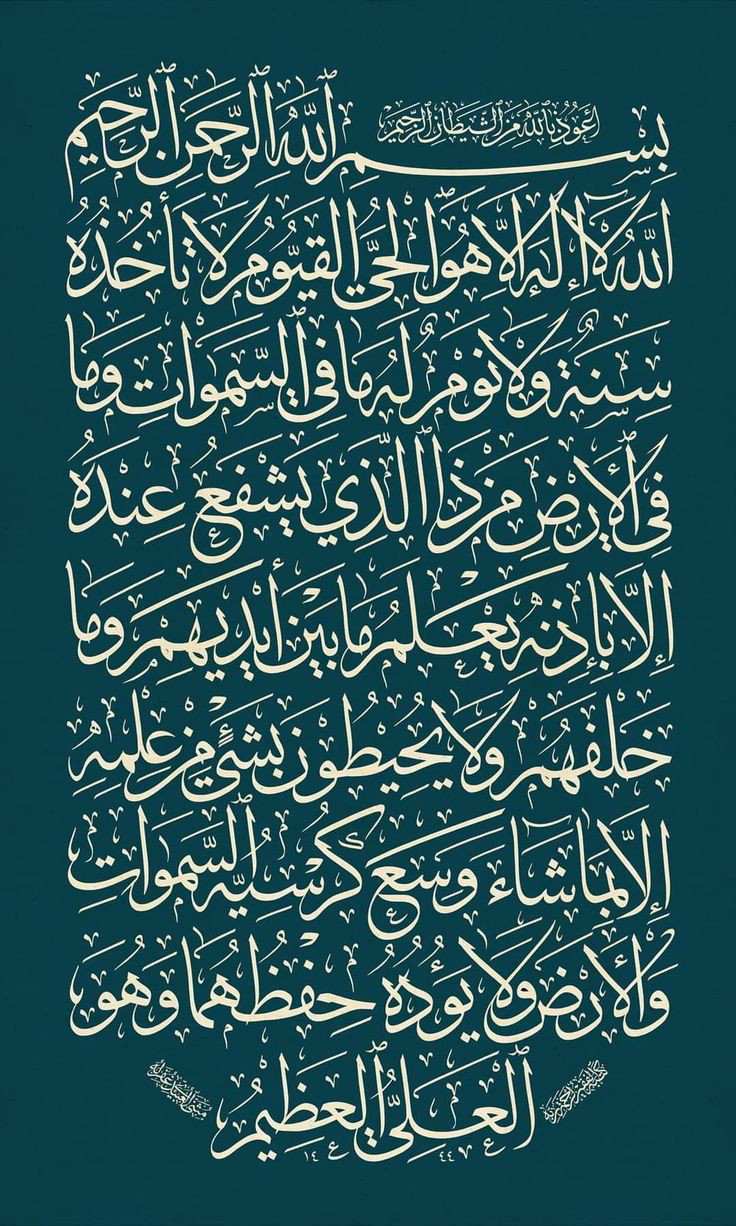 اعوذ بالله من الشيطان الرجيم
بِسْمِ ٱللَّهِ ٱلرَّحْمَنِ ٱلرَّحِيمِ
اَللَّهُ لَآ اِلَهَ اِلَّا هُوَ ٱلْحَيُّ الْقَيُّومُ لَا تَأْخُذُهُ
سِنَةٌ وَلَا نَوْمٌ لَهُ مَا فِي ٱلسَّمَوَاتِ وَمَا
فِي ٱلْأَرْضِ مَنْ ذَا ٱلَّذِي يَشْفَعُ عِنْدَهُ
اِلَّا بِاِذْنِهِ يَعْلَمُ مَا بَيْنَ أَيْدِيهِمْ وَمَا
خَلْفَهُمْ وَلَا يُحِيطُونَ بِشَيْءٍ مِنْ عِلْمِهِ
اِلَّا بِمَا شَآءَ وَسِعَ كُرْسِيُّهُ ٱلسَّمَوَاتِ
وَٱلْأَرْضَ وَلَا يَؤُدُهُ حِفْظُهُمَا وَهُوَ
ٱلْعَلِيُّ ٱلْعَظِيمُ
١٤٤٤